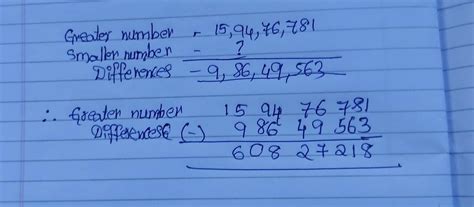 Greater number - 15,94,76,781
Smaller number - ?
Differences - 9,86,49,563
∴ Greater number 15 94 76 781
Differences (-) 9 86 49 563
608 27218